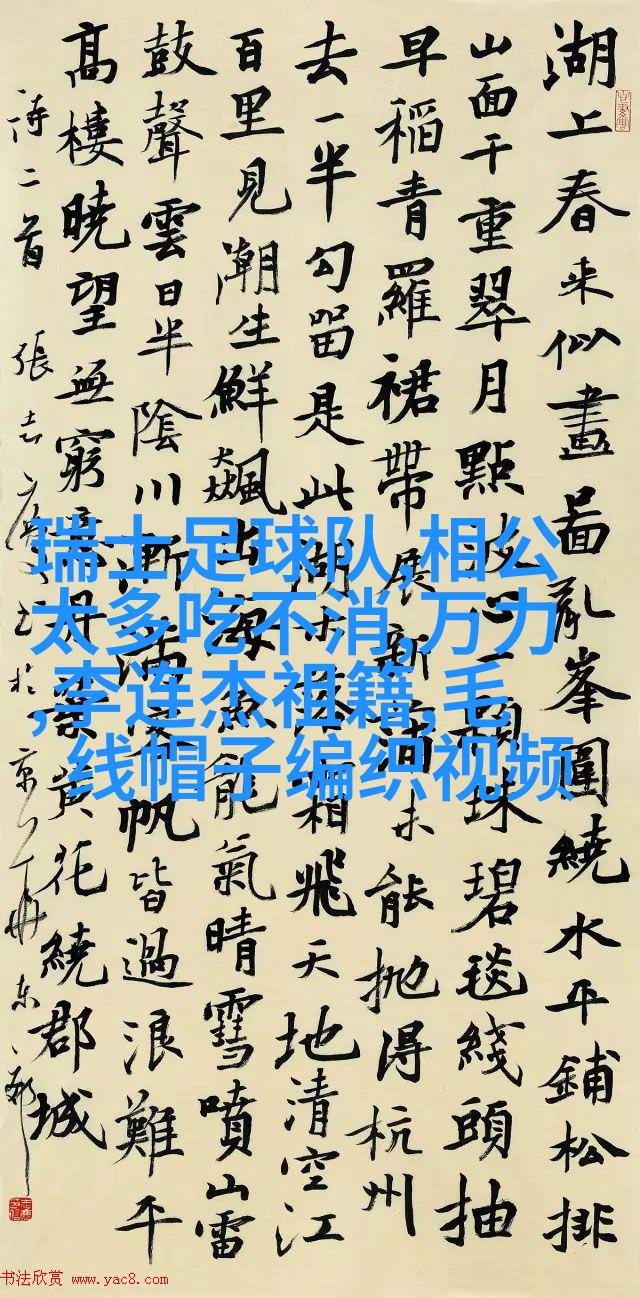 湖上春来似畫啚亂峯圍繞水平鋪松排
山面千重翠月點波心一顆珠碧毯綫頭抽
早稻青羅裙帶展新蒲未能抛得杭州
去一半勾留是此湖 飛天地清空江
百里見潮生鮮飇出海魚龍氣晴雪噴山雷
鼓聲雲日半陰川漸滿客帆皆過浪難平
高樓曉望無窮意丹葉黄花繞郡城
詩二首 張志
瑞士足球队,相公
太多吃不消,万力
,李连杰祖籍,毛
线帽子编织视频
书法欣赏 www.yac8.com